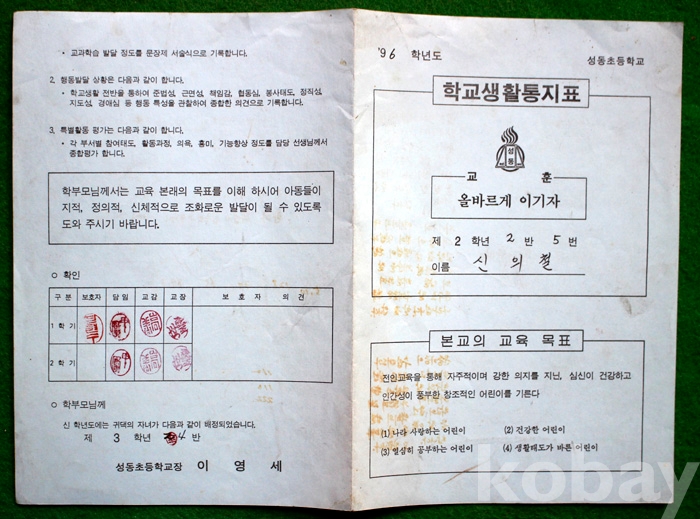 • 교과학습 발달 정도를 문장제 서술식으로 기록합니다.
2. 행동발달 상황은 다음과 같이 합니다.
• 학교생활 전반을 통하여 준법성, 근면성, 책임감, 협동심, 봉사태도, 정직성,
지도성, 경애심 등 행동 특성을 관찰하여 종합한 의견으로 기록합니다.
3. 특별활동 평가는 다음과 같이 합니다.
• 각 부서별 참여태도, 활동과정, 의욕, 흥미, 기능향상 정도를 담당 선생님께서
종합평가 합니다.
학부모님께서는 교육 본래의 목표를 이해 하시어 아동들이
지적, 정의적, 신체적으로 조화로운 발달이 될 수 있도록
도와 주시기 바랍니다.
○ 확인
구 분 보호자 담 임 교 감 교 장 보 호 자 의 견
1 학 기
2 학 기
○ 학부모님께
신 학년도에는 귀댁의 자녀가 다음과 같이 배정되었습니다.
제 3 학년 4 반
성동초등학교장 이 영 세
'96 학년도 성동초등학교
학교생활통지표
성동
교 훈
올바르게 이기자
제 2 학년 2 반 5 번
이름 신 의 철
본교의 교육 목표
전인교육을 통해 자주적이며 강한 의지를 지닌, 심신이 건강하고
인간성이 풍부한 창조적인 어린이를 기른다
(1) 나라 사랑하는 어린이 (2) 건강한 어린이
(3) 열심히 공부하는 어린이 (4) 생활태도가 바른 어린이
kobay